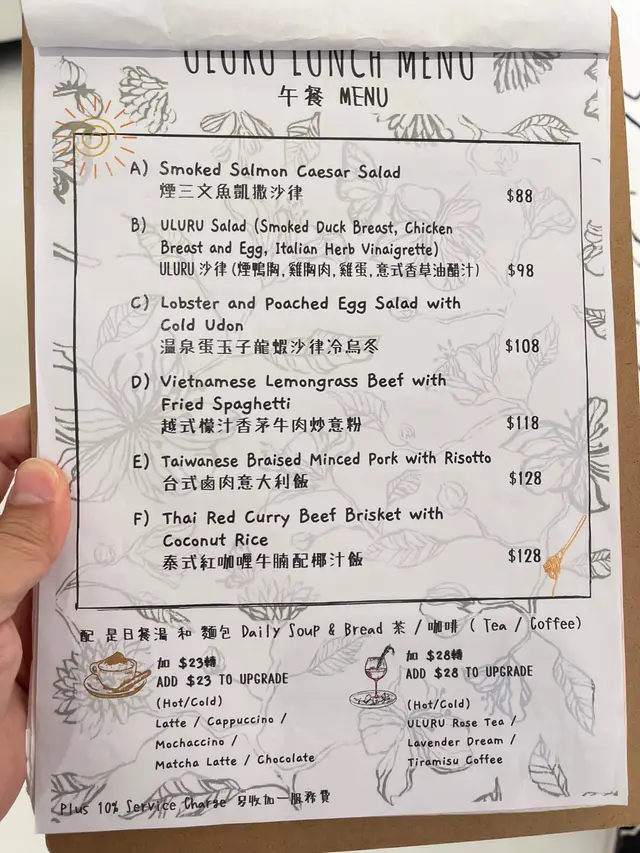 ULURU LUNCH MENU
午餐 MENU
A) Smoked Salmon Caesar Salad
煙三文魚凱撒沙律 $88
B) ULURU Salad (Smoked Duck Breast, Chicken
Breast and Egg, Italian Herb Vinaigrette)
ULURU 沙律 (煙鴨胸, 雞胸肉, 雞蛋, 意式香草油醋汁) $98
C) Lobster and Poached Egg Salad with
Cold Udon
溫泉蛋玉子龍蝦沙律冷烏冬 $108
D) Vietnamese Lemongrass Beef with
Fried Spaghetti
越式檬汁香茅牛肉炒意粉 $118
E) Taiwanese Braised Minced Pork with Risotto
台式鹵肉意大利飯 $128
F) Thai Red Curry Beef Brisket with
Coconut Rice
泰式紅咖喱牛腩配椰汁飯 $128
配 是日餐湯 和 麵包 Daily Soup & Bread 茶 / 咖啡 ( Tea / Coffee)
加 $23轉
ADD $23 TO UPGRADE
(Hot/Cold)
Latte / Cappuccino /
Mochaccino /
Matcha Latte / Chocolate
加 $28轉
ADD $28 TO UPGRADE
(Hot/Cold)
ULURU Rose Tea /
Lavender Dream /
Tiramisu Coffee
Plus 10% Service Charge 另收加一服務費